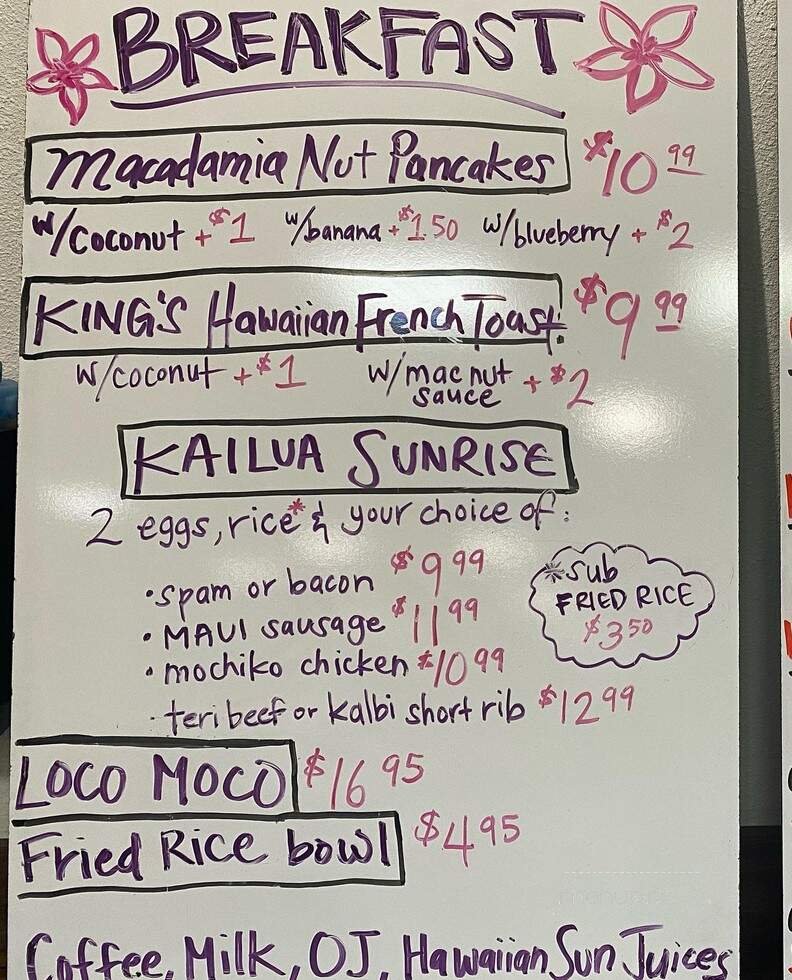 BREAKFAST
Macadamia Nut Pancakes $10 99
w/coconut + $1 w/banana + $1.50 w/blueberry + $2
KING'S Hawaiian French Toast $9 99
w/coconut + $1 w/mac nut sauce + $2
KAILUA SUNRISE
2 eggs, rice* & your choice of:
• spam or bacon $9 99
• MAUI sausage $11 99
• mochiko chicken $10 99
• teri beef or kalbi short rib $12 99
*sub
FRIED RICE
$3 50
LOCO MOCO $16 95
Fried Rice bowl $4 95
Coffee, Milk, OJ, Hawaiian Sun Juices